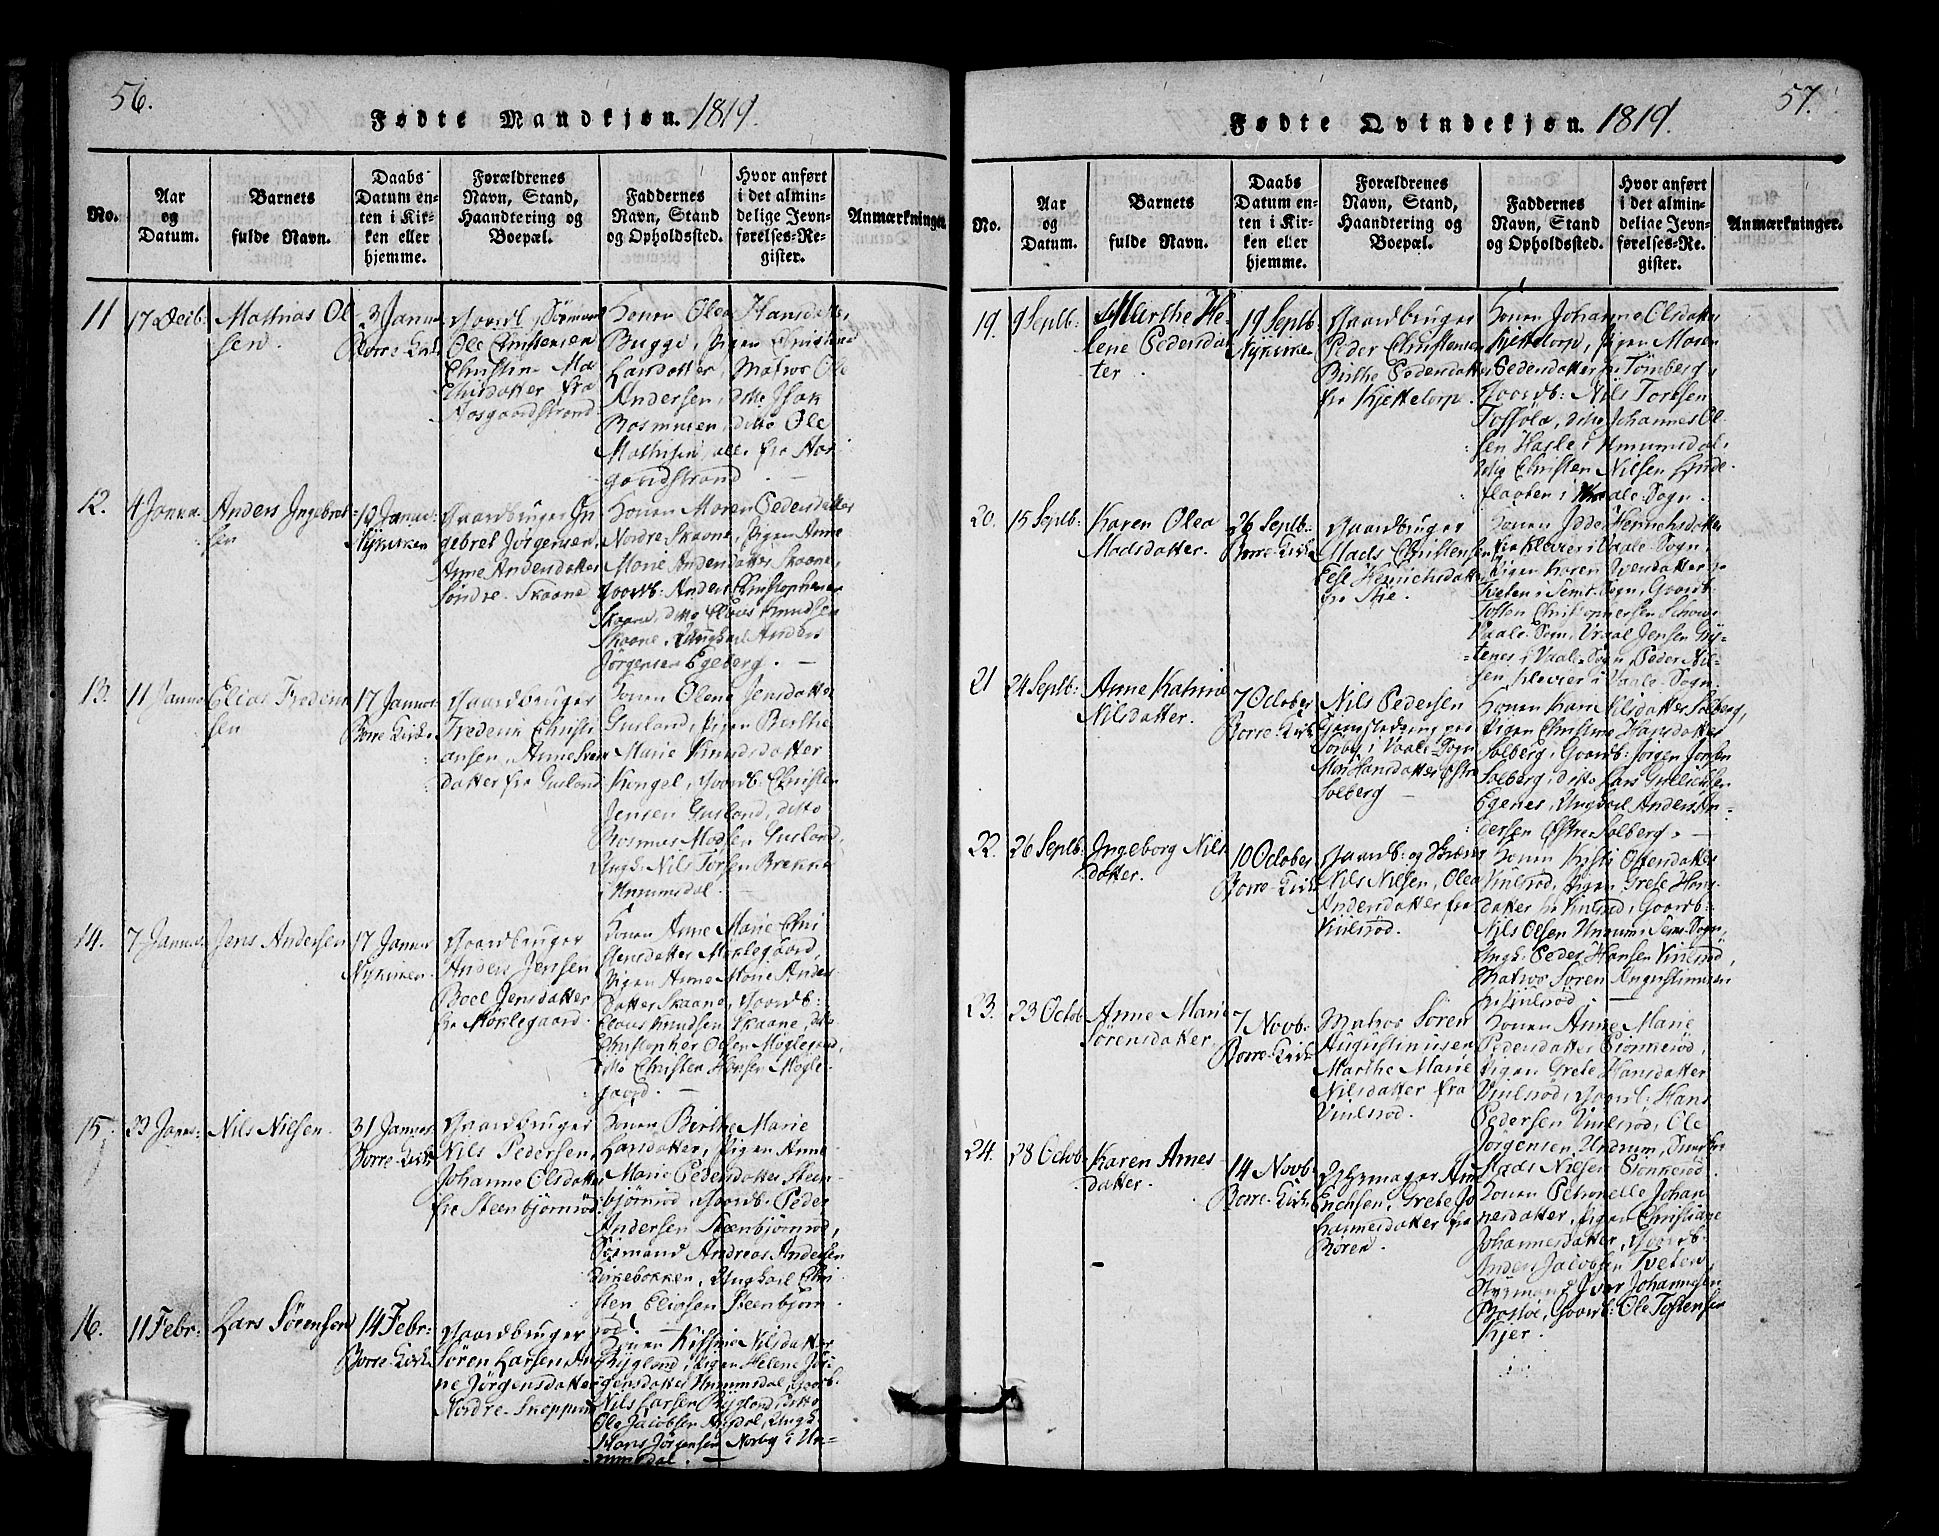 56.
Fødte Mandkjøn. 1819.
No.
Aar
og
Datum.
Barnets
fulde Navn.
Daabs
Datum en-
ten i Kir-
ken eller
hjemme.
Forældrenes
Navn, Stand,
Haandtering og
Boepæl.
Faddernes
Navn, Stand
og Opholdssted.
Hvor anført
i det almin-
delige Jevn-
førelses-Re-
gister.
Anmærkninger.
11
17 Decb.
Mathias Ol
sen.
3 Janua
Borre Kirke
Ole Christensen
Christin Ma
thisdatter fra
Aasgaardstrand
Konen Olea Hansdatter
Bugge, Pigen Christine
Larsdatter, Matros Ole
Andersen, ditto Isak
Rasmusen, ditto Ole
Mathisen, alle fra Aas
gaardstrand.
12.
4 Janua.
Anders Ingebret
sen
10 Janua:
Nykirken
Gaardbruger In
gebret Jørgensen,
Anne Andersdatter
Søndre Skaane
Konen Maren Pedersdatter
Nordre Skaane, Pigen Anne
Marie Andersdatter Skaane,
Gaardb: Anders Christophersen
Skaane, ditto Claus Knudsen
Skaane, Ungkarl Anders
Jørgensen Egeberg. —
13.
11 Janua
Elias Frederik
sen
17 Januar
Borre Kirke
Gaardbruger
Frederik Christi
ansen, Anne Iver
datter fra Gusland
Konen Olene Jensdatter
Gusland, Pigen Berthe
Marie Knudsdatter
Kongel, Gaardb: Christen
Jensen Gusland, ditto
Rasmus Madsen Gusland,
Ungk. Nils Torsen Brekke
i Unumsdal.
14.
7 Januar
Jens Andersen
17 Januar
Nykirken.
Gaardbruger
Anders Jensen
Boel Jensdatter
fra Møklegaard.
Konen Anne Marie Chri
stensdatter Møklegaard,
Pigen Anne Marie Anders
datter Skaane, Gaardb:
Claus Knudsen Skaane, ditto
Christopher Olsen Møglegaard,
ditto Christen Hansen Møgle
gaard. —
15.
23 Janu:
Nils Nilsen.
31 Januar
Borre-Kirke
Gaardbruger
Nils Pedersen,
Johanne Olsdatter
fra Steenbjørnrød
Konen Berthe Marie
Larsdatter, Pigen Anne
Marie Pedersdatter Steen-
bjørnrød, Gaardb: Peder
Andersen Steenbjørnrød,
Sømand Andreas Andersen
Kirkebakken, Ungkarl Chri
sten Eliasen Steenbjørn
16.
11 Febr:
Lars Sørensen
14 Febr:
Borre-Kirke
Gaardbruger
Søren Larsen, An
ne Jørgensdatter
Nordre Skoppum
Konen Nilsdatter
Rygland, Pigen Helene Jør
gensdatter Unumsdal, Gaardb.
Nils Larsen Rygland, ditto
Ole Jacobsen Ungk.
Hans Jørgensen Norby i Un-
umsdal. —
57.
Fødte Qvindekjøn. 1819.
No.
Aar
og
Datum.
Barnets
fulde Navn.
Daabs
Datum en-
ten i Kir-
ken eller
hjemme.
Forældrenes
Navn, Stand,
Haandtering og
Boepæl.
Faddernes
Navn, Stand
og Opholdssted.
Hvor anført
i det almin-
delige Jevn-
førelses-Re-
gister.
Anmærkninger.
19.
9 Septb:
Marthe He-
lene Pedersda
ter.
19 Septb
Nykirken
Gaardbruger
Peder Christensen
Birthe Pedersdatter
fra Kjettelorp
Konen Johanne Olsdatter
Kjettelorp, Pigen Maren
Pedersdatter fra Tønsberg,
Gaardb: Nils Toresen
ditto Johannes Ol
sen Hasle i Unumsdal,
ditto Christen Nilsen Linde
flaaten i Vaale-Sogn.
20.
15 Septb:
Karen Olea
Madsdatter.
26 Septb:
Borre-Kirke
Gaardbruger
Mads Christensen
Else Henrichsdatter
fra Skie.
Konen Idde Henrichsdatter
fra Klevier i Vaale-Sogn,
Pigen Karen Iversdatter
Tveten i Semb-Sogn, Gaardb:
Tosten Christophersen
Vaale-Sogn, Vraal Jensen
i Vaale-Sogn Peder Nil-
sen Klevier i Vaale-Sogn.
21
24 Septb:
Anne Katrine
Nilsdatter.
7 October
Borre-Kirke
Nils Pedersen
i Vaale-Sogn
Mari Hansdatter Østre
Solberg —
Konen Karen Nilsdatter Solberg,
Pigen Christine Hansdatter
Solberg, Gaardb: Jørgen Jensen
Solberg, ditto Lars Gulliksen
Egenes, Ungkarl Anders An-
dersen Østre Solberg. —
22.
26 Septb:
Ingeborg Nils
datter.
10 October
Borre-Kirke
Gaardb: og
Nils Nilsen, Olea
Andersdatter fra
Viulsrød.
Konen Kirsti Ostensdatter
Viulsrød, Pigen Grete Hans-
datter fra Viulsrød, Gaardb:
Nils Olsen Undrum, Sems-Sogn,
Ungk: Peder Hansen Viulsrød,
Matros Søren Augustinusen
fra Viulsrød —
23.
23 Octob
Anne Marie
Sørensdatter.
7 Novb:
Borre-Kirke
Matros Søren
Augustinusen
Marthe Marie
Nilsdatter fra
Viulsrød.
Konen Anne Marie
Pedersdatter Bjonkerød,
Pigen Grete Hansdatter
Viulsrød, Gaardb: Hans
Pedersen Viulsrød, Ole
Jørgensen Undrum,
Mads Nilsen Bjonkerød
24.
28 Octob
Karen Arnes-
datter.
14 Novb
Borre-Kirke
Arne
Erichsen, Grete Jo
hannesdatter fra
Røren.
Konen Petronelle Johan
nesdatter, Pigen Christiane
Johannesdatter, Gaardb.
Anders Jacobsen Tveten,
Styrmand Iver Johannesen
Gaardb: Ole Tostensen
Kjer.